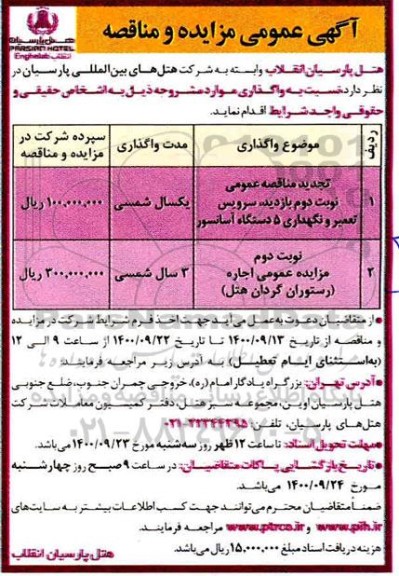 آگهی عمومی مزایده و مناقصه
هتل پارسیان
PARSIAN HOTEL
Enghelab انقلاب
هتل پارسیان انقلاب وابسته به شرکت هتل‌های بین‌المللی پارسیان در
نظر دارد نسبت به واگذاری موارد مشروحه ذیل به اشخاص حقیقی و
حقوقی واجد شرایط اقدام نماید.
ردیف موضوع واگذاری مدت واگذاری سپرده شرکت در مزایده و مناقصه
۱ تجدید مناقصه عمومی نوبت دوم بازدید، سرویس تعمیر و نگهداری ۵ دستگاه آسانسور یکسال شمسی ۱۰۰,۰۰۰,۰۰۰ ریال
۲ نوبت دوم مزایده عمومی اجاره (رستوران گردان هتل) ۳ سال شمسی ۳۰۰,۰۰۰,۰۰۰ ریال
• از متقاضیان دعوت به عمل می‌آید جهت اخذ فرم شرایط شرکت در مزایده
و مناقصه از تاریخ ۱۴۰۰/۰۹/۱۳ تا تاریخ ۱۴۰۰/۰۹/۲۲ از ساعت ۹ الی ۱۲
(به‌استثنای ایام تعطیل) به آدرس زیر مراجعه فرمایند:
• آدرس تهران: بزرگراه یادگار امام (ره)، خروجی چمران جنوب، ضلع جنوبی
هتل پارسیان اوین، مجموعه سبز هتل، دفتر کمیسیون معاملات شرکت
هتل‌های پارسیان، تلفن: ۲۲۳۴۴۳۹۵-۰۲۱
• مهلت تحویل اسناد: تا ساعت ۱۲ ظهر روز سه‌شنبه مورخ ۱۴۰۰/۰۹/۲۳ می‌باشد.
• تاریخ بازگشایی پاکات متقاضیان: در ساعت ۹ صبح روز چهارشنبه
مورخ ۱۴۰۰/۰۹/۲۴ می‌باشد.
ضمنا متقاضیان محترم می‌توانند جهت کسب اطلاعات بیشتر به سایت‌های
www.pih.ir و www.ptrco.ir مراجعه فرمایند.
هزینه دریافت اسناد مبلغ ۱۵,۰۰۰,۰۰۰ ریال می‌باشد.
هتل پارسیان انقلاب